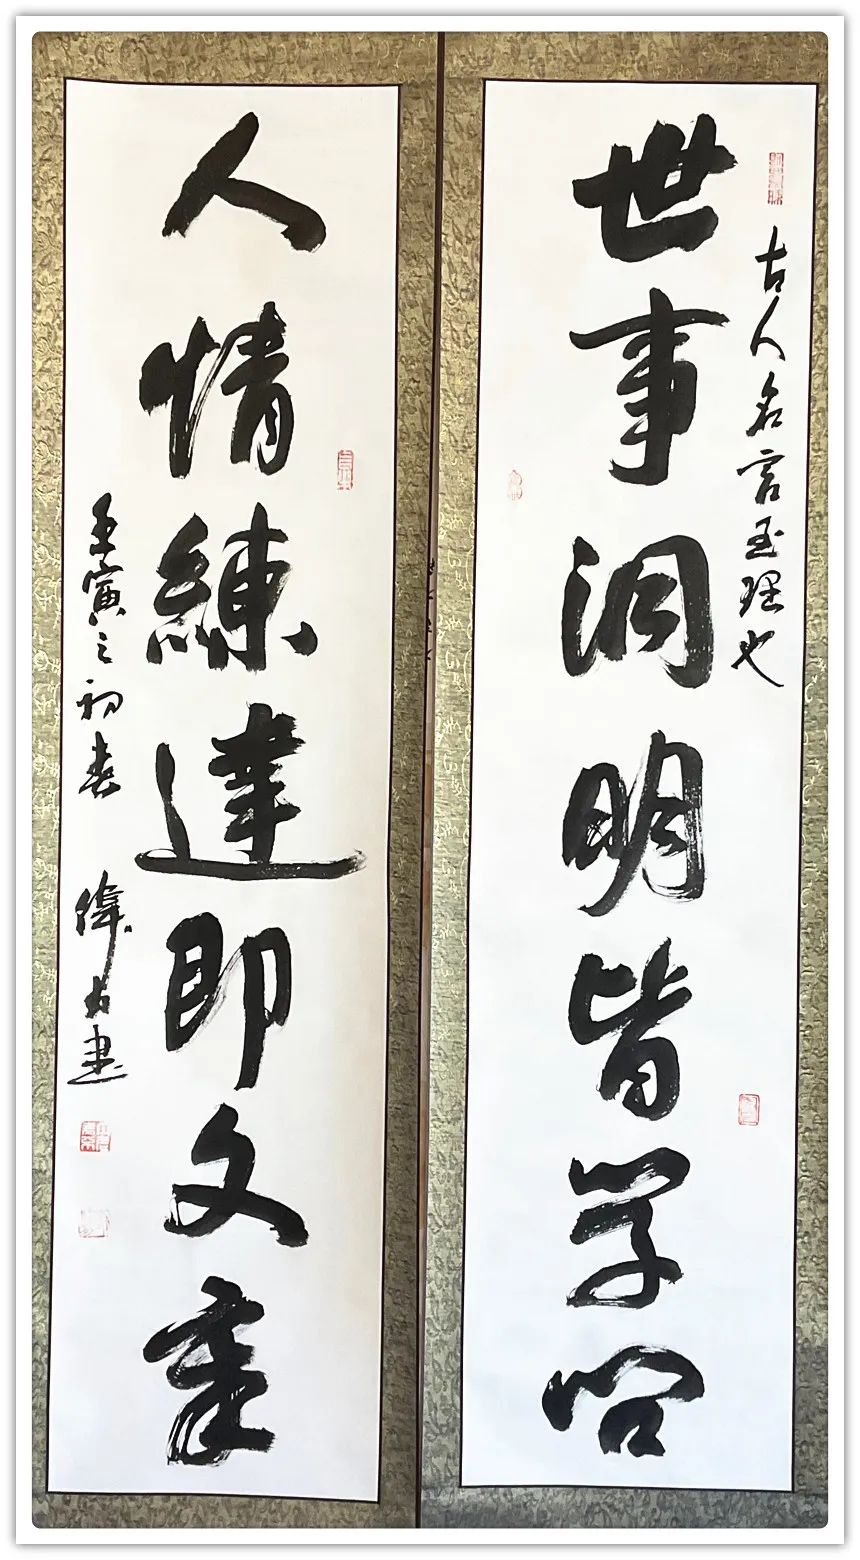 古人名言至理也
世事洞明皆学問
人情練達即文章
壬寅之初春 偉書